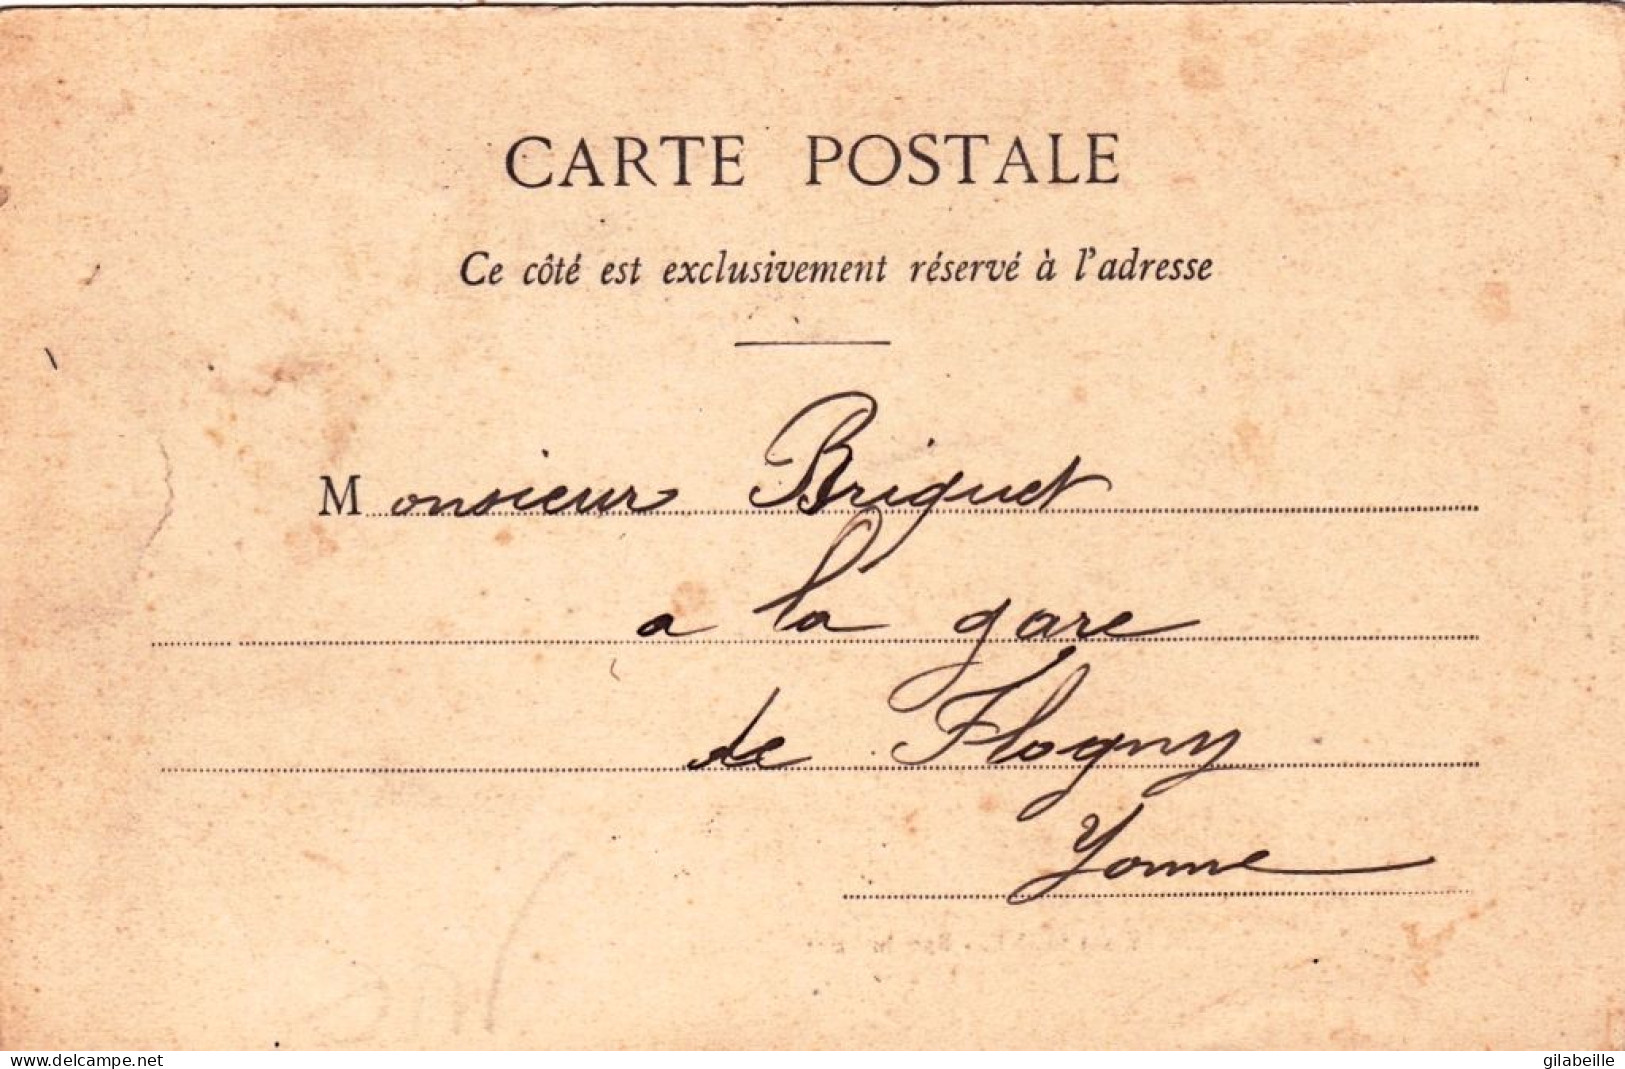 CARTE POSTALE
Ce côté est exclusivement réservé à l'adresse
Monsieur Briquet
a la gare
de Flogny
Yonne
www.delcampe.net
gilabeille